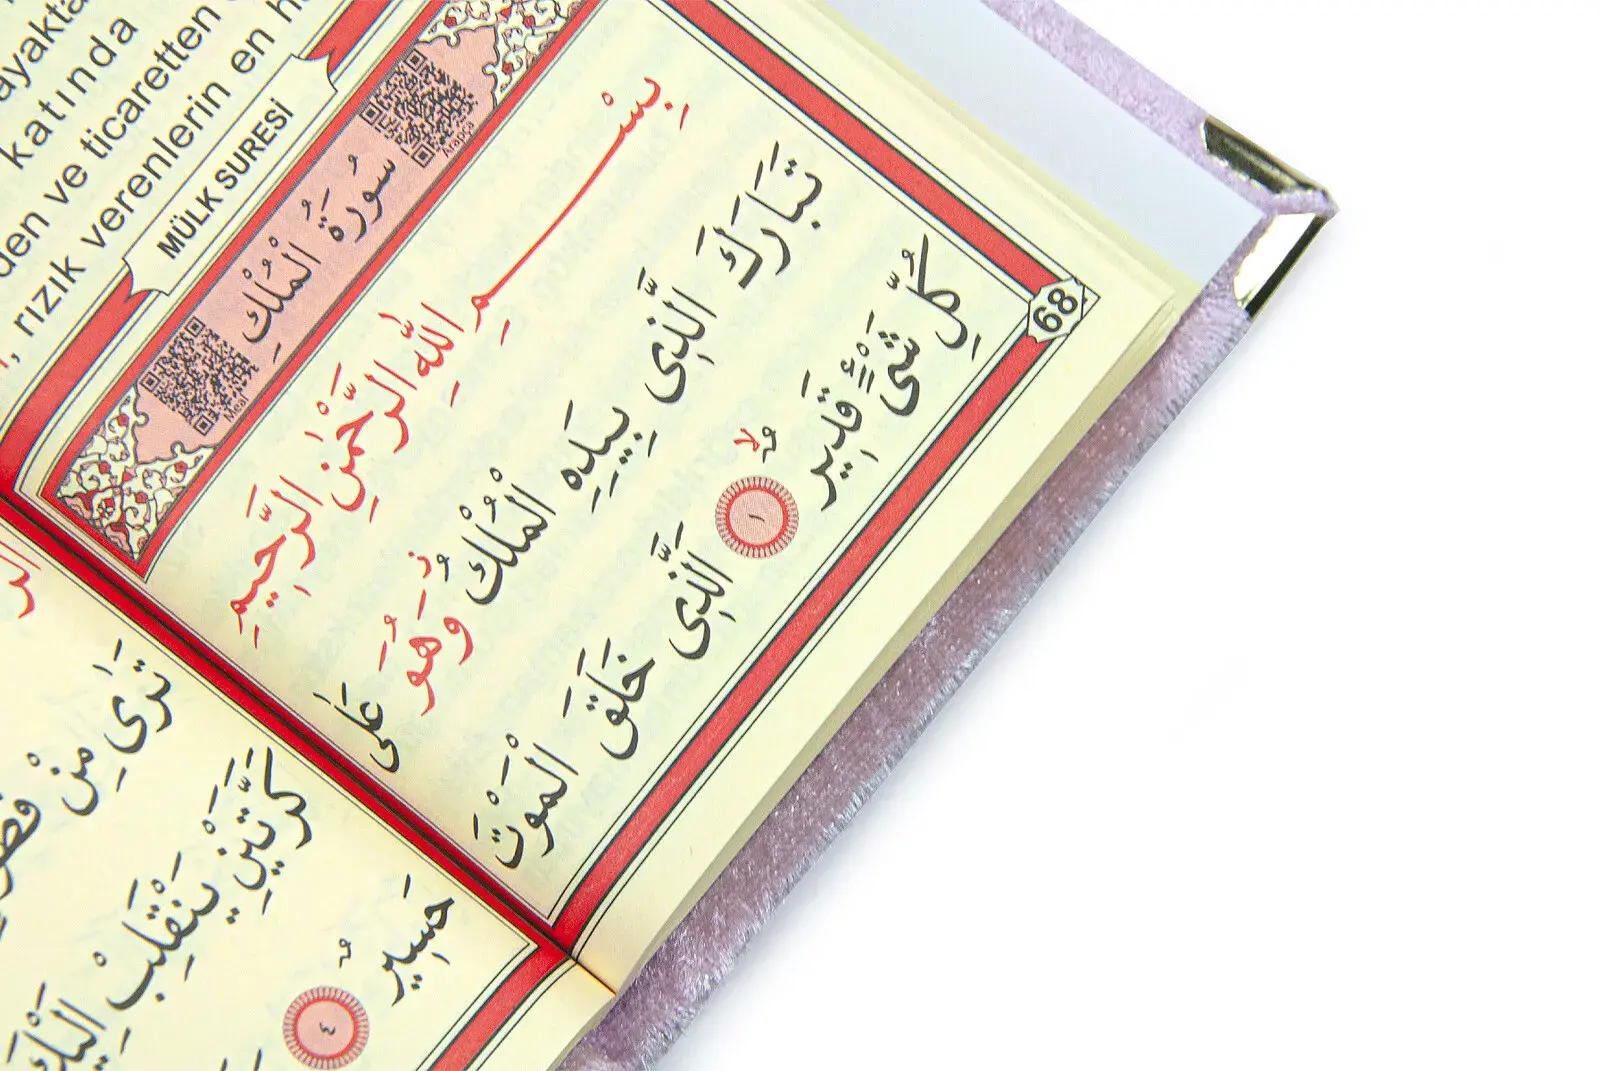 ayakta
katında
den ve ticaretten
, rızık verenlerin en
MÜLK SURESİ
Arapça
سُورَةُ الْمُلْكِ
Meal
68
بِسْمِ اللّٰهِ الرَّحْمٰنِ الرَّحِيمِ
تَبَارَكَ الَّذِى بِيَدِهِ الْمُلْكُ وَهُوَ عَلٰى
كُلِّ شَىْءٍ قَدِيرٌ ۙ ﴿١﴾ اَلَّذِى خَلَقَ الْمَوْتَ
تَرٰىۙ مِنْ
كَرَّتَيْنِ يَنْقَلِبْ اِلَيْكَ
حَسِيرٌ ﴿٤﴾